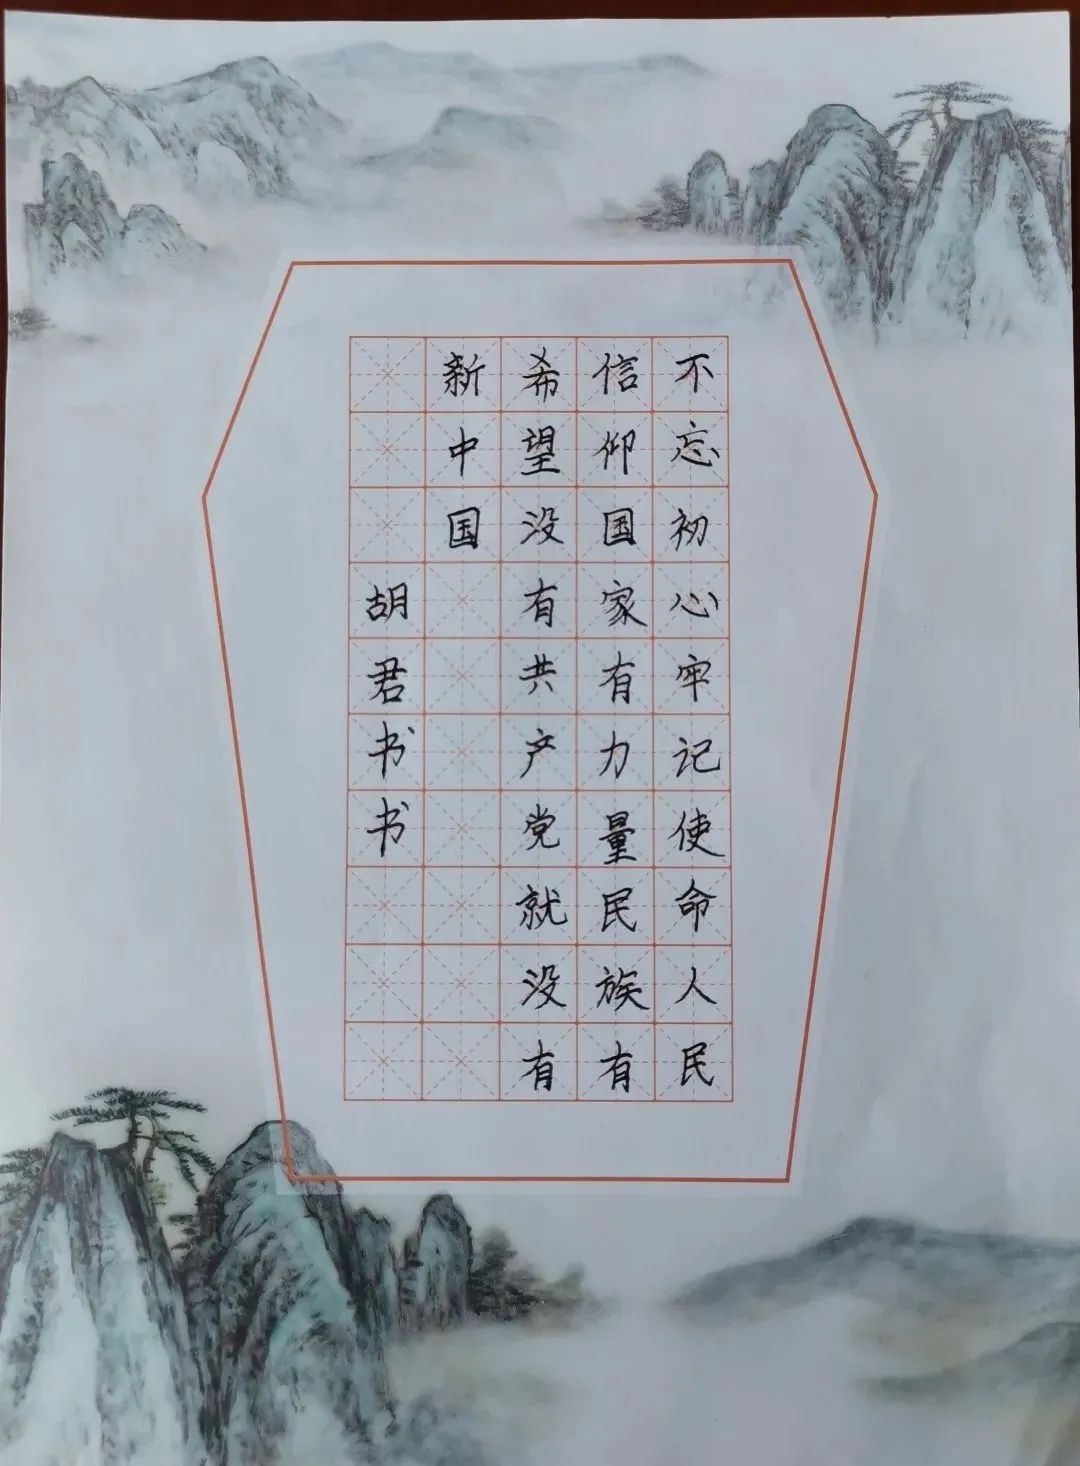 不忘初心牢记使命人民
信仰国家有力量民族有
希望没有共产党就没有
新中国
胡君书书